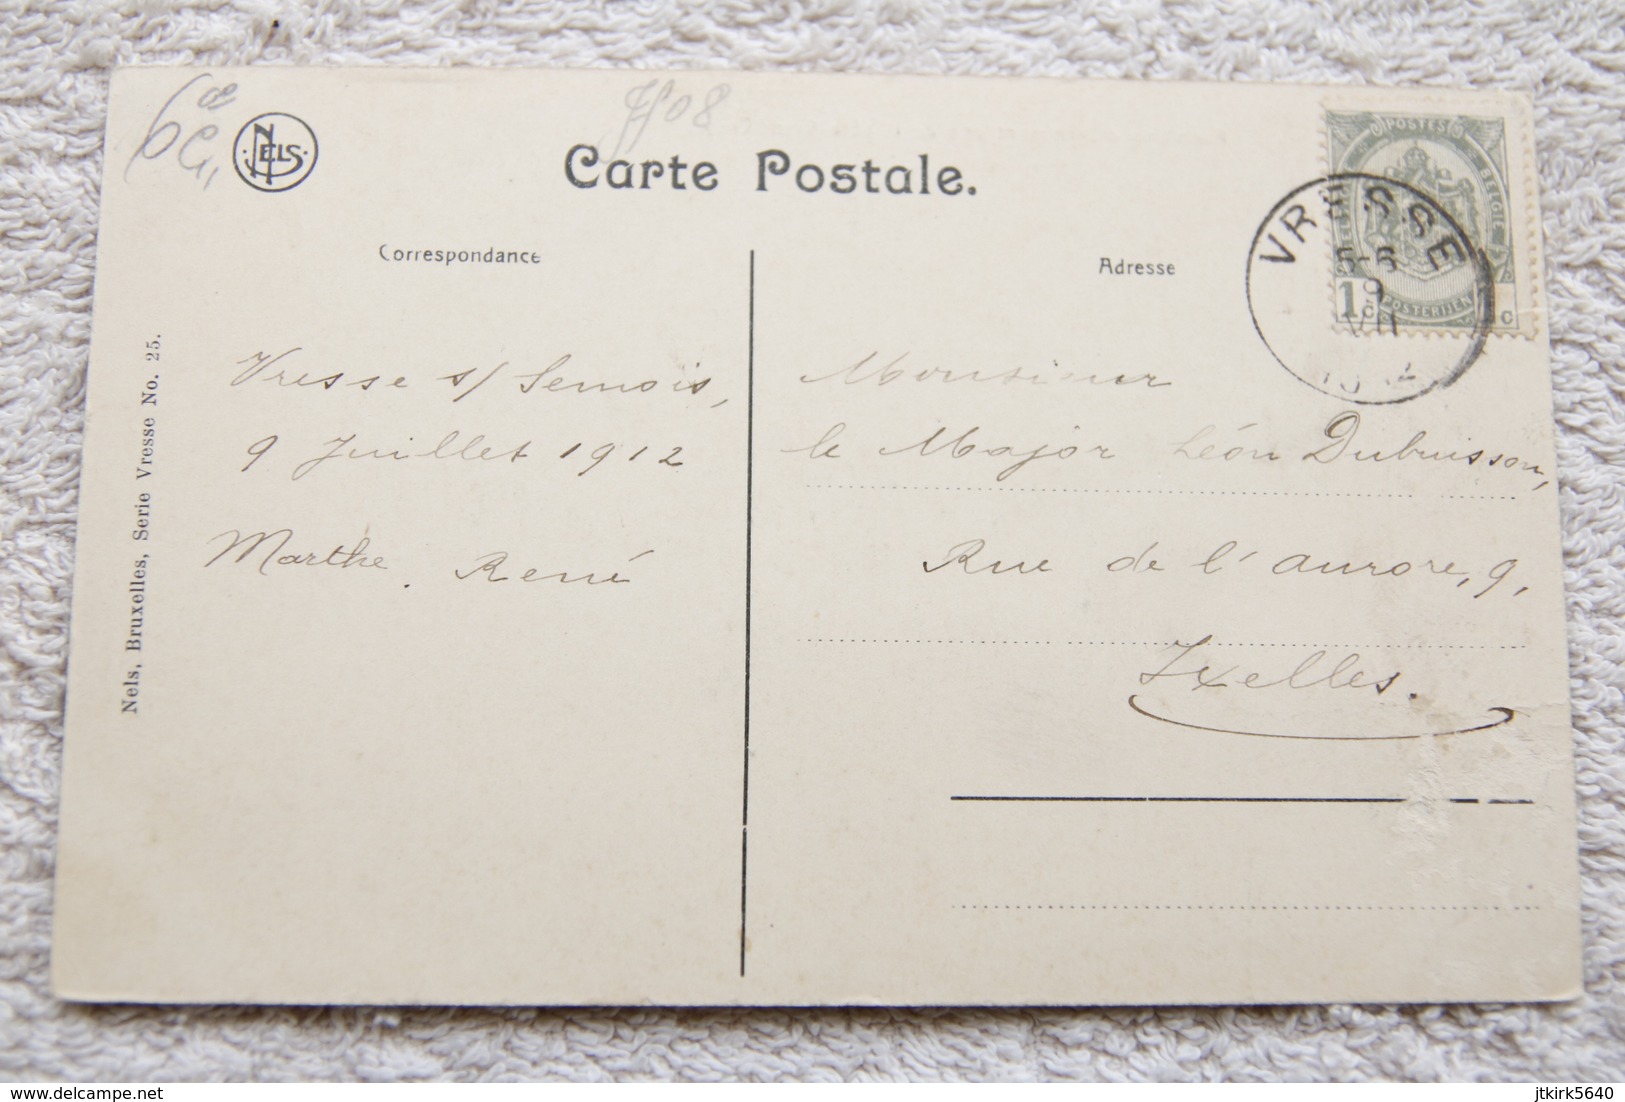 NELS
Carte Postale.
Correspondance
Adresse
POSTES
BELGIE
POSTERIJEN
1 c
c
VRESSE
5-6
9
VII
Vresse s/ Semois,
9 Juillet 1912
Marthe. René
Monsieur
le Major Léon Dubuisson,
Rue de l'aurore, 9,
Ixelles.
Nels, Bruxelles, Serie Vresse No. 25.
www.delcampe.net
jtkirk5640